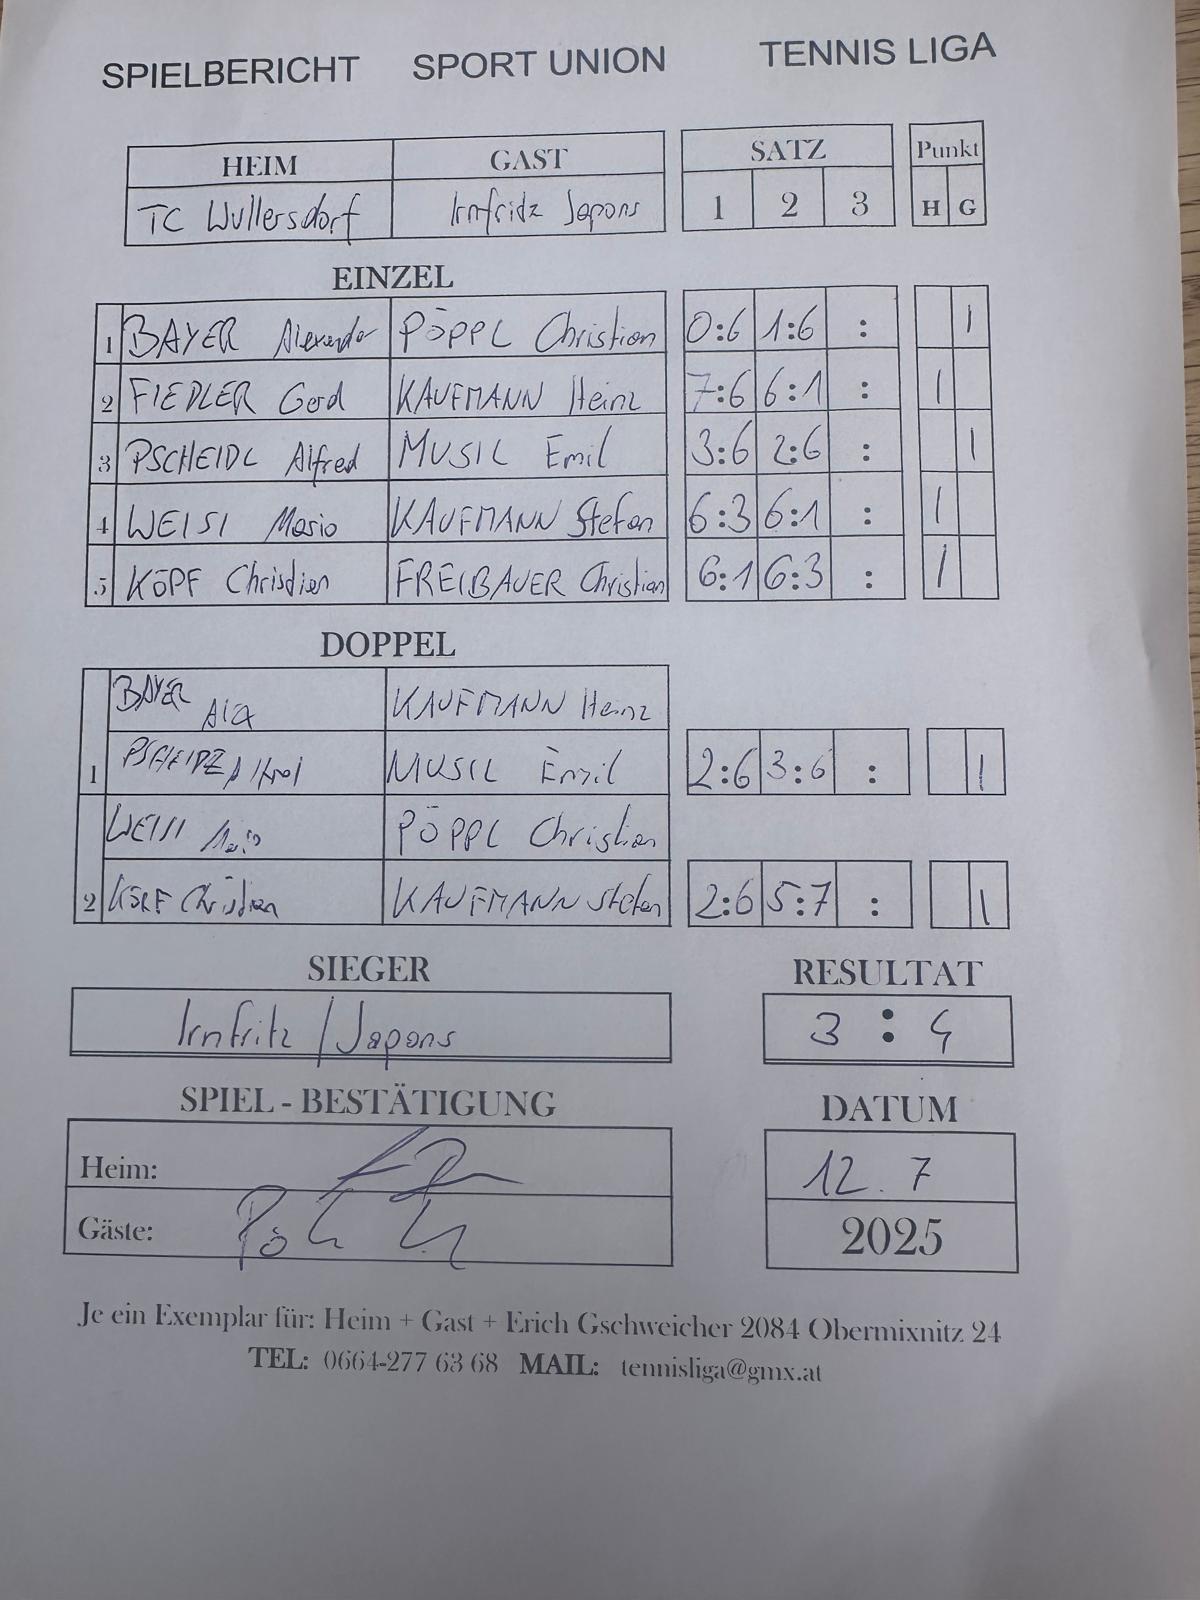 SPIELBERICHT SPORT UNION TENNIS LIGA
HEIM GAST SATZ Punkt
TC Wullersdorf Irnfritz Japons 1 2 3 H G
EINZEL
1 BAYER Alexander PÖPPL Christian 0:6 1:6 : 1
2 FIEDLER Gerd KAUFMANN Heinz 7:6 6:1 : 1
3 PSCHEIDL Alfred MUSIL Emil 3:6 2:6 : 1
4 WEISI Mario KAUFMANN Stefan 6:3 6:1 : 1
5 KÖPF Christian FREIBAUER Christian 6:1 6:3 : 1
DOPPEL
BAYER Alex KAUFMANN Heinz
1 Alfred MUSIL Emil 2:6 3:6 : 1
WEISI Mario PÖPPL Christian
2 KÖPF Christian KAUFMANN Stefan 2:6 5:7 : 1
SIEGER RESULTAT
Irnfritz / Japons 3 : 4
SPIEL - BESTÄTIGUNG DATUM
Heim: 12. 7
Gäste: 2025
Je ein Exemplar für: Heim + Gast + Erich Gschweicher 2084 Obermixnitz 24
TEL: 0664-277 63 68 MAIL: tennisliga@gmx.at